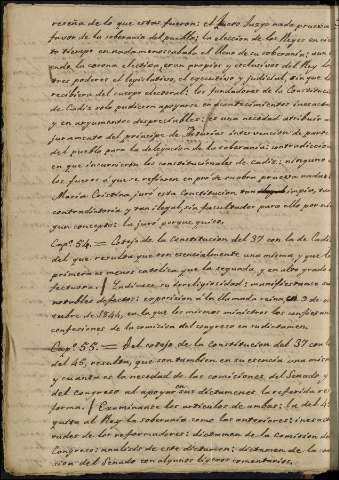 reseña de lo que estos fueron: el fuero Juzgo nada prueva a
favor de la soberania del pueblo; la eleccion de los Reyes en cier
to tiempo en nada menoscababa el lleno de su soberania; aun
cuando la corona electiva, eran propios y exclusivos del Rey los
tres poderes el legislativo, el executivo y judicial, sin que los
recibiera del cuerpo electoral: los fundadores de la Constitucion
de Cadiz solo pudieron apoyarse en acontecimientos inexactos
y en argumentos despreciables: es una necedad atribuir al
juramento del principe de Asturias intervencion de parte
del pueblo para la delegacion de la soberania: contradicciones
en que incurrieron los constitucionales de Cadiz: ninguno de
los fueros a que se refieren en pro de su obra prueva nada:
Maria Cristina, juró esta Constitucion tan impia, tan
contradictoria y tan ilegal, sin facultades para ello por nin
gun concepto: la juró porque quiso.
Capº. 54. = Cotejo de la Constitucion del 37 con la de Cadiz,
del que resulta que son esencialmente una misma, y que la
primera es menos catolica que la segunda, y en alto grado
Zadinese su irreligiosidad: manifiestanse sus
notables defectos: exposicion a la llamada reina, en 9 de oc
tubre de 1844, en la que los mismos ministros los confiesan:
confesiones de la comision del congreso en su dictamen.
Capº. 55. = Del cotejo de la Constitucion del 37 con la
del 45, resulta, que son tambien en su esencia una misma
y cuanta es la necedad de las comisiones del Senado y
del Congreso al apoyar en sus dictamenes la referida re
forma. Examinanse los articulos de ambas: la del 45
quita al Rey la soberania como las anteriores: inexac
tudes de los reformadores: dictamen de la Comision del
Congreso: analisis de este dictamen: dictamen de la comi
sion del Senado con algunos ligeros comentarios.